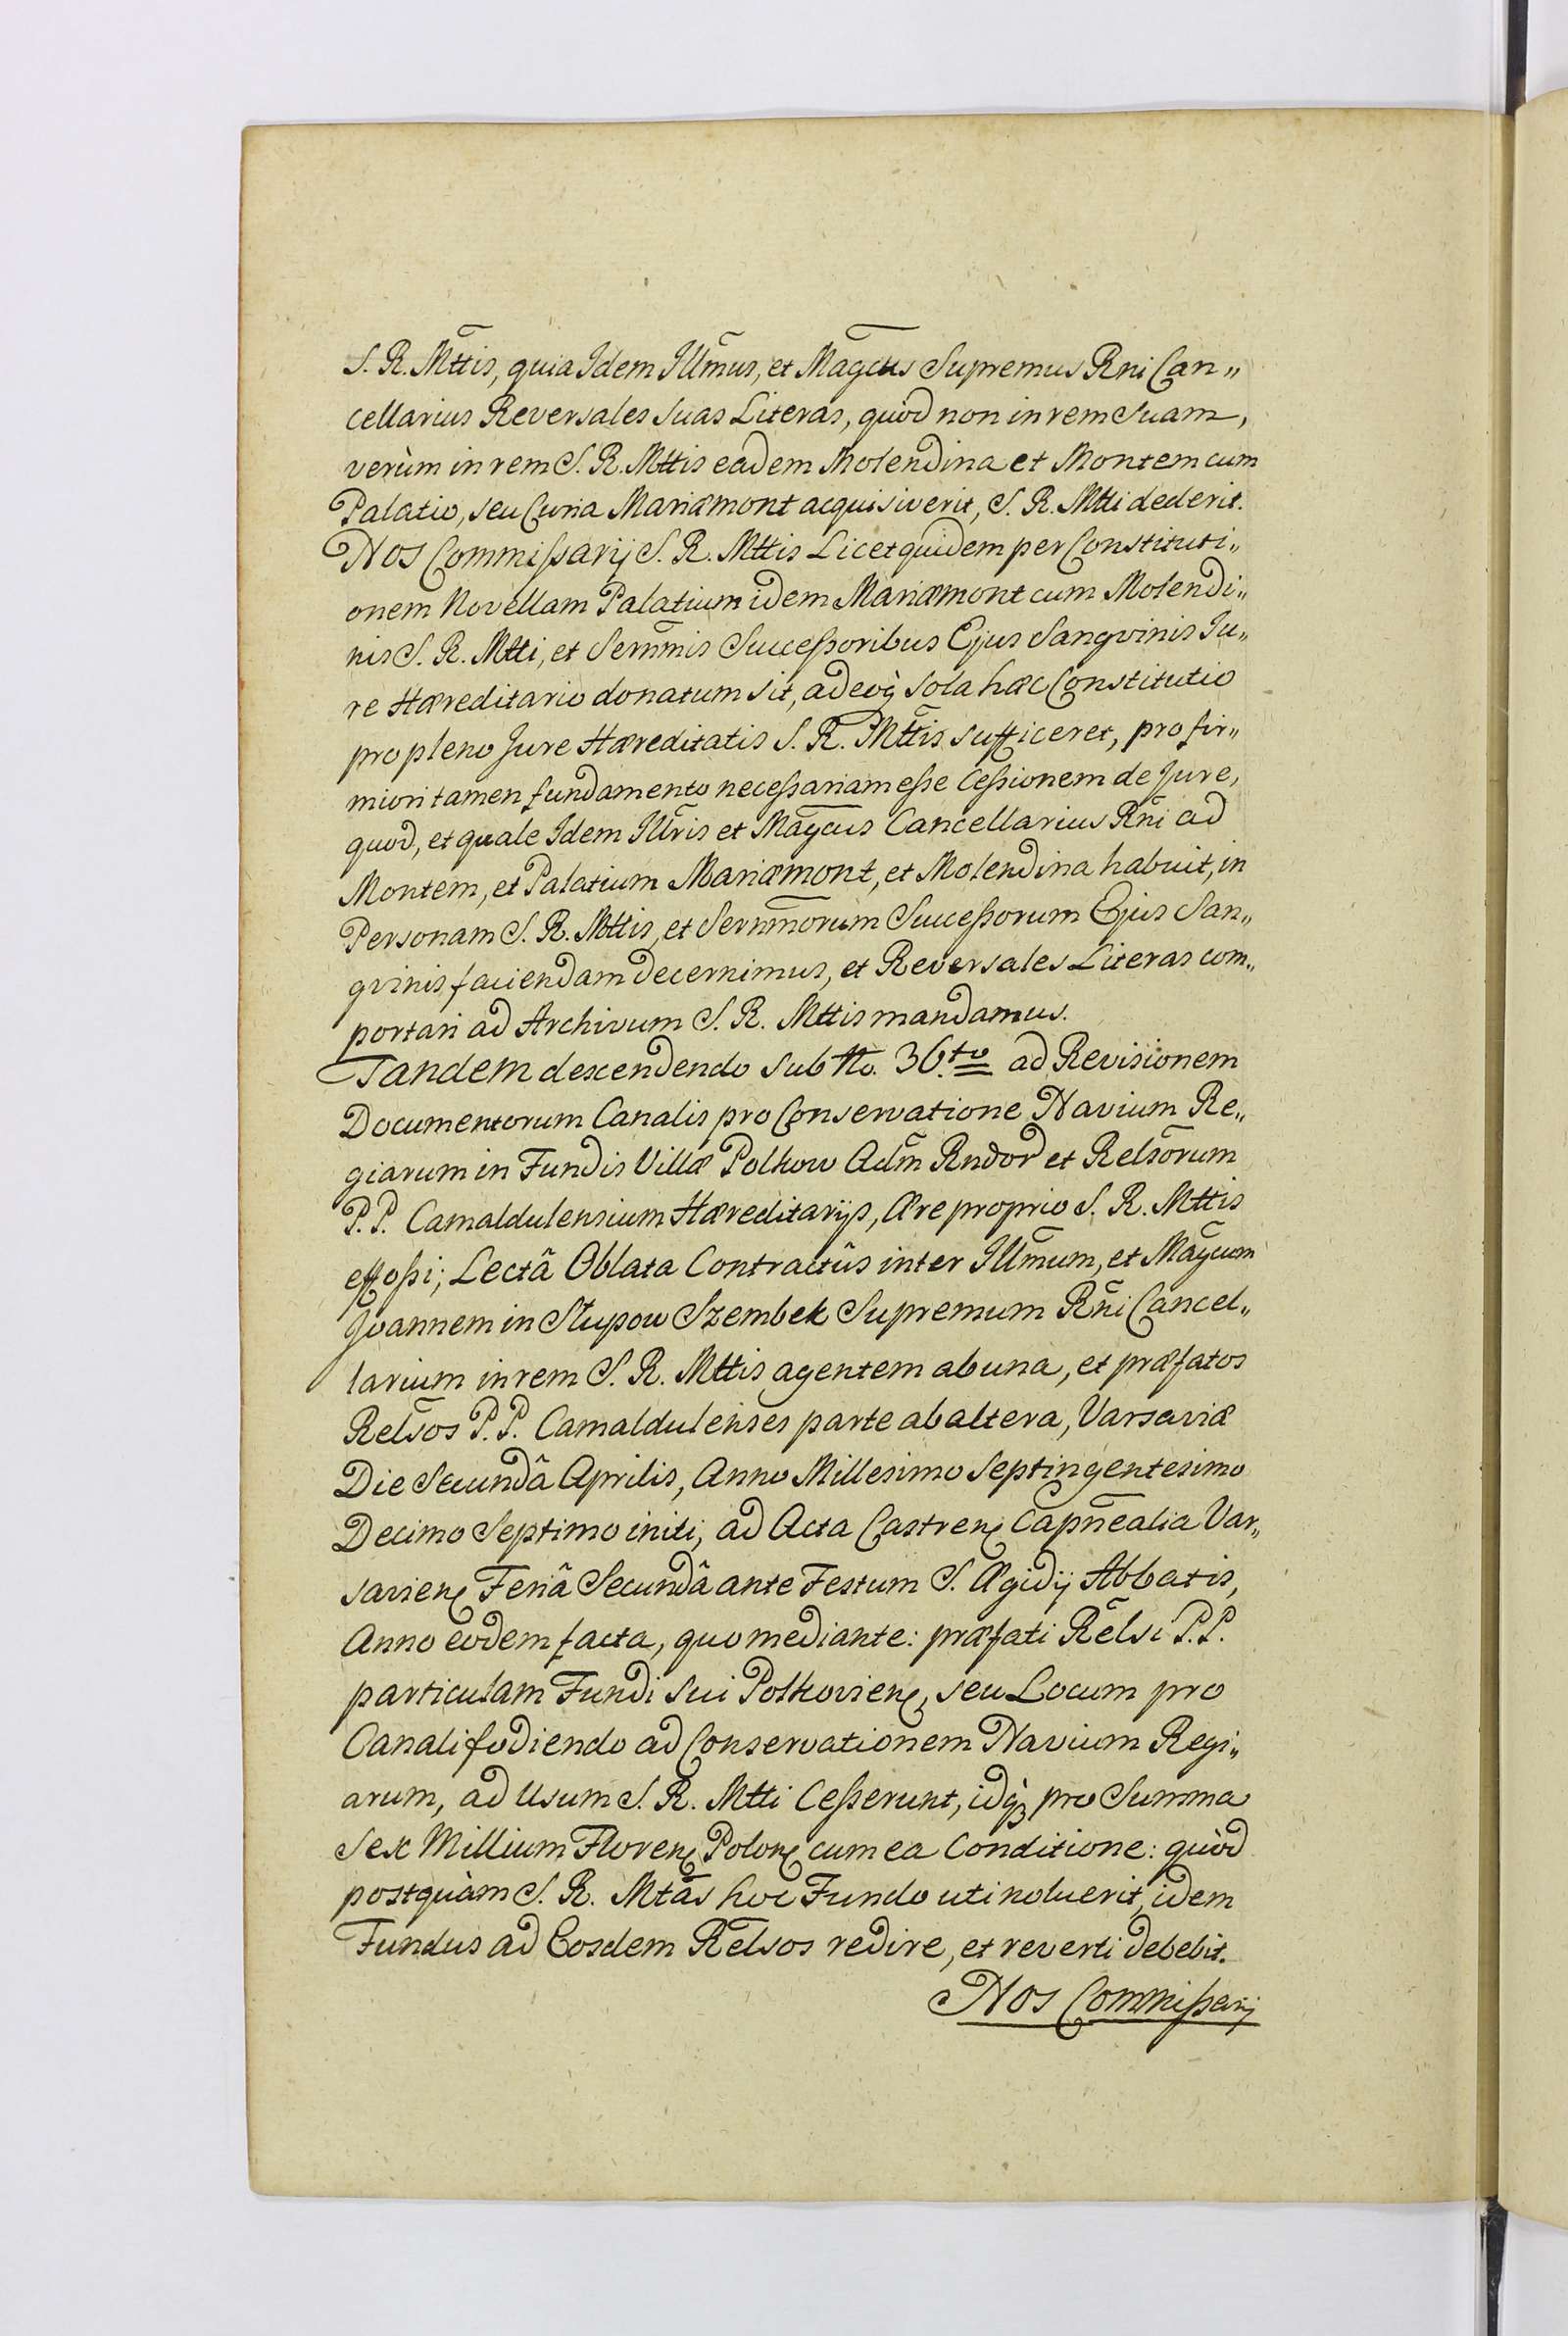 S. R. Mttis, quia Idem Illmus, et Magcus Supremus Rni Can„
cellarius Reversales suas Literas, quòd non in rem suam,
verùm in rem S. R. Mttis eadem Molendina et Montem cum
Palatio, seu Curia Mariæmont acquisiverit, S. R. Mtti dederit.
Nos Commißarij S. R. Mttis Licet quidem per Constituti„
onem Novellam Palatium idem Mariæmont cum Molendi„
nis S. R. Mtti, et Sernmis Succeßoribus Ejus Sangvinis Ju„
re Hæreditario donatum sit, adeoq̀ sola hæc Constitutio
pro pleno Jure Hæreditatis S. R. Mttis sufficeret, pro fir„
miori tamen fundamento neceßariam eße Ceßionem de Jure,
quod, et quale Idem Illris et Magcus Cancellarius Rni ad
Montem, et Palatium Mariæmont, et Molendina habuit, in
Personam S. R. Mttis, et Sernmorum Succeßorum Ejus San„
gvinis faciendam decernimus, et Reversales Literas com„
portari ad Archivum S. R. Mttis mandamus.
Tandem descendendo sub No. 36.to ad Revisionem
Documentorum Canalis pro Conservatione Navium Re„
giarum in Fundis Villæ Polkow Adm Rndor et Relsorum
P.P. Camaldulensium Hæreditarijs, Ære proprio S. R. Mttis
effoßi; Lectâ Oblata Contractûs inter Illmum, et Magcum
Joannem in Słupow Szembek Supremum Rni Cancel„
larium in rem S. R. Mttis agentem ab una, et præfatos
Relsos P.P. Camaldulenses parte ab altera, Varsaviæ
Die Secundâ Aprilis, Anno Millesimo Septingentesimo
Decimo Septimo initi, ad Acta Castren Capnealia Var„
savien Feriâ Secundâ ante Festum S. Ægidij Abbatis,
Anno eodem facta, quo mediante: præfati Relsi P.P.
particulam Fundi sui Polkovien, seu Locum pro
Canali fodiendo ad Conservationem Navium Regi„
arum, ad Usum S. R. Mtti Ceßerunt, idq̀ pro Summa
Sex Millium Floren Polon cum ea Conditione: quòd
postquàm S. R. Mtas hoc Fundo uti noluerit, idem
Fundus ad Eosdem Relsos redire, et reverti debebit.
Nos Commißarij